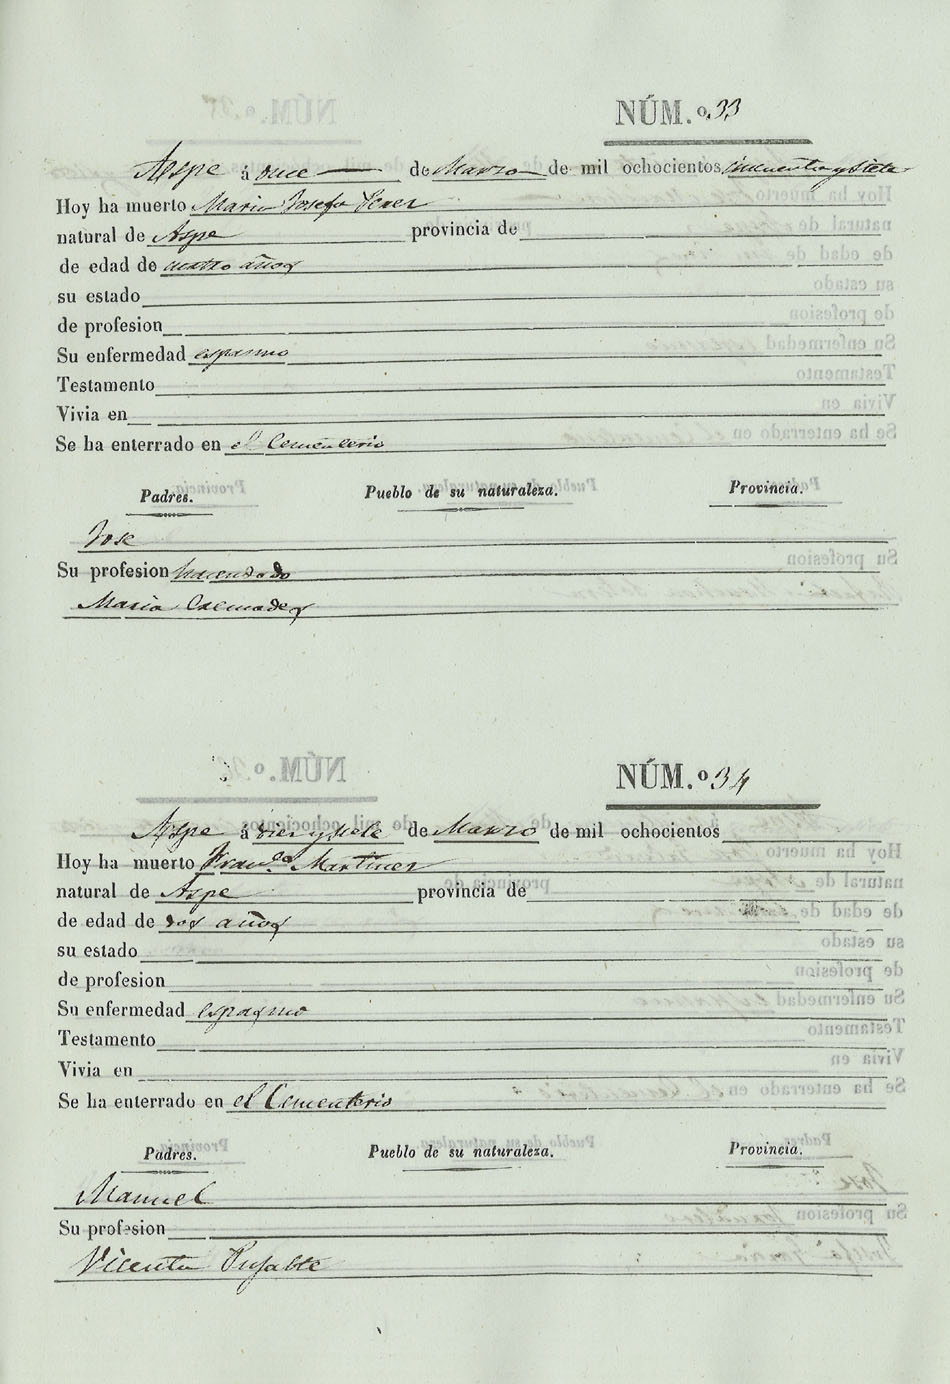 NÚM.º 33
Aspe á once de Marzo de mil ochocientos cincuenta y siete
Hoy ha muerto Maria Josefa
natural de Aspe provincia de
de edad de cuatro años
su estado
de profesion
Su enfermedad espasmo
Testamento
Vivia en
Se ha enterrado en el Cementerio
Padres. Pueblo de su naturaleza. Provincia.
Jose
Su profesion hacendado
Maria Cremades
NÚM.º 34
Aspe á diez y siete de Marzo de mil ochocientos
Hoy ha muerto Franca. Martinez
natural de Aspe provincia de
de edad de dos años
su estado
de profesion
Su enfermedad espasmo
Testamento
Vivia en
Se ha enterrado en el Cementerio
Padres. Pueblo de su naturaleza. Provincia.
Manuel
Su profesion
Vicenta